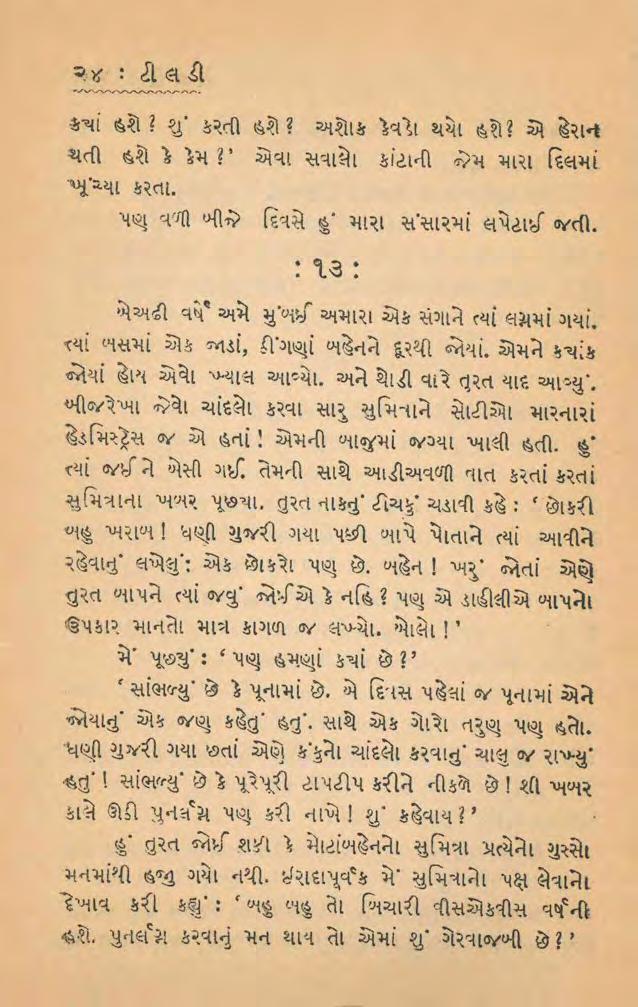 ૨૪ : ટી લ ડી
ક્યાં હશે ? શું કરતી હશે ? અશોક કેવડો થયો હશે? એ હેરાન
થતી હશે કે કેમ ?’ એવા સવાલો કાંટાની જેમ મારા દિલમાં
ખૂંચ્યા કરતા.
પણ વળી બીજે દિવસે હું મારા સંસારમાં લપેટાઈ જતી.
: ૧૩ :
બેઅઢી વર્ષે અમે મુંબઈ અમારા એક સંગાને ત્યાં લગ્નમાં ગયાં.
ત્યાં બસમાં એક જાડાં, ઠીંગણાં બહેનને દૂરથી જોયાં. એમને કચાંક
જોયાં હોય એવો ખ્યાલ આવ્યો. અને થોડી વારે તુરત યાદ આવ્યું.
બીજરેખા જેવો ચાંદલો કરવા સારુ સુમિત્રાને સોટીઓ મારનારાં
હેડમિસ્ટ્રેસ જ એ હતાં ! એમની બાજુમાં જગ્યા ખાલી હતી. હું
ત્યાં જઈ ને બેસી ગઈ. તેમની સાથે આડીઅવળી વાત કરતાં કરતાં
સુમિત્રાના ખબર પૂછયા. તુરત નાકનું ટીચકું ચડાવી કહે : ‘ છોકરી
બહુ ખરાબ ! ધણી ગુજરી ગયા પછી બાપે પોતાને ત્યાં આવીને
રહેવાનું લખેલું: એક છોકરો પણ છે. બહેન ! ખરું જોતાં એણે
તુરત બાપને ત્યાં જવું જોઈએ કે નહિ ? પણ એ ડાહીલીએ બાપનો
ઉપકાર માનતો માત્ર કાગળ જ લખ્યો. બોલો ! ’
મેં પૂછ્યું : ‘ પણ હમણાં કયાં છે ?’
‘ સાંભળ્યું છે કે પૂનામાં છે. બે દિવસ પહેલાં જ પૂનામાં એને
જોયાનું એક જણ કહેતું હતું. સાથે એક ગોરો તરુણ પણ હતો.
ધણી ગુજરી ગયા છતાં એણે કંકુનો ચાંદલો કરવાનું ચાલુ જ રાખ્યું
હતું ! સાંભળ્યું છે કે પૂરેપૂરી ટાપટીપ કરીને નીકળે છે ! શી ખબર
કાલે ઊડી પુનર્લગ્ન પણ કરી નાખે ! શું કહેવાય ?’
હું તુરત જોઈ શકી કે મોટાંબહેનનો સુમિત્રા પ્રત્યેનો ગુસ્સો
મનમાંથી હજુ ગયો નથી. ઈરાદાપૂર્વક મેં સુમિત્રાનો પક્ષ લેવાનો
દેખાવ કરી કહ્યું : ‘ બહુ બહુ તો બિચારી વીસએકવીસ વર્ષની
હશે. પુનર્લગ્ન કરવાનું મન થાય તો એમાં શું ગેરવાજબી છે ?’